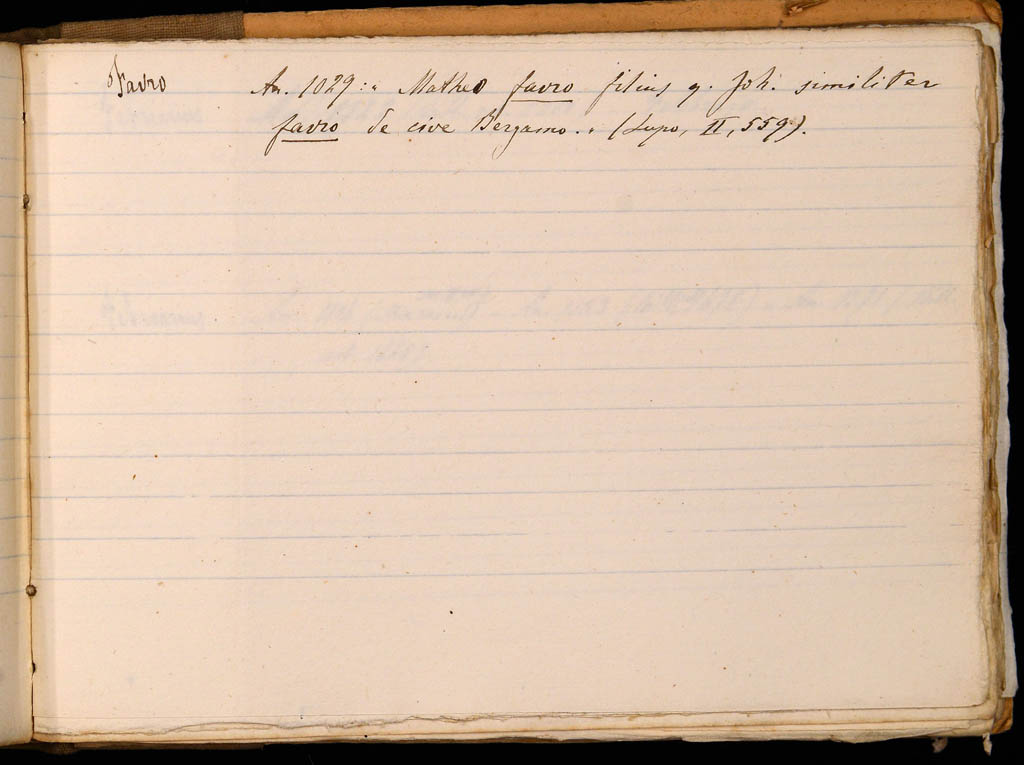 Favro An. 1029: „ Matheo favro filius q. Joh. similiter
favro de cive Bergamo. „ (Lupo, II, 559).